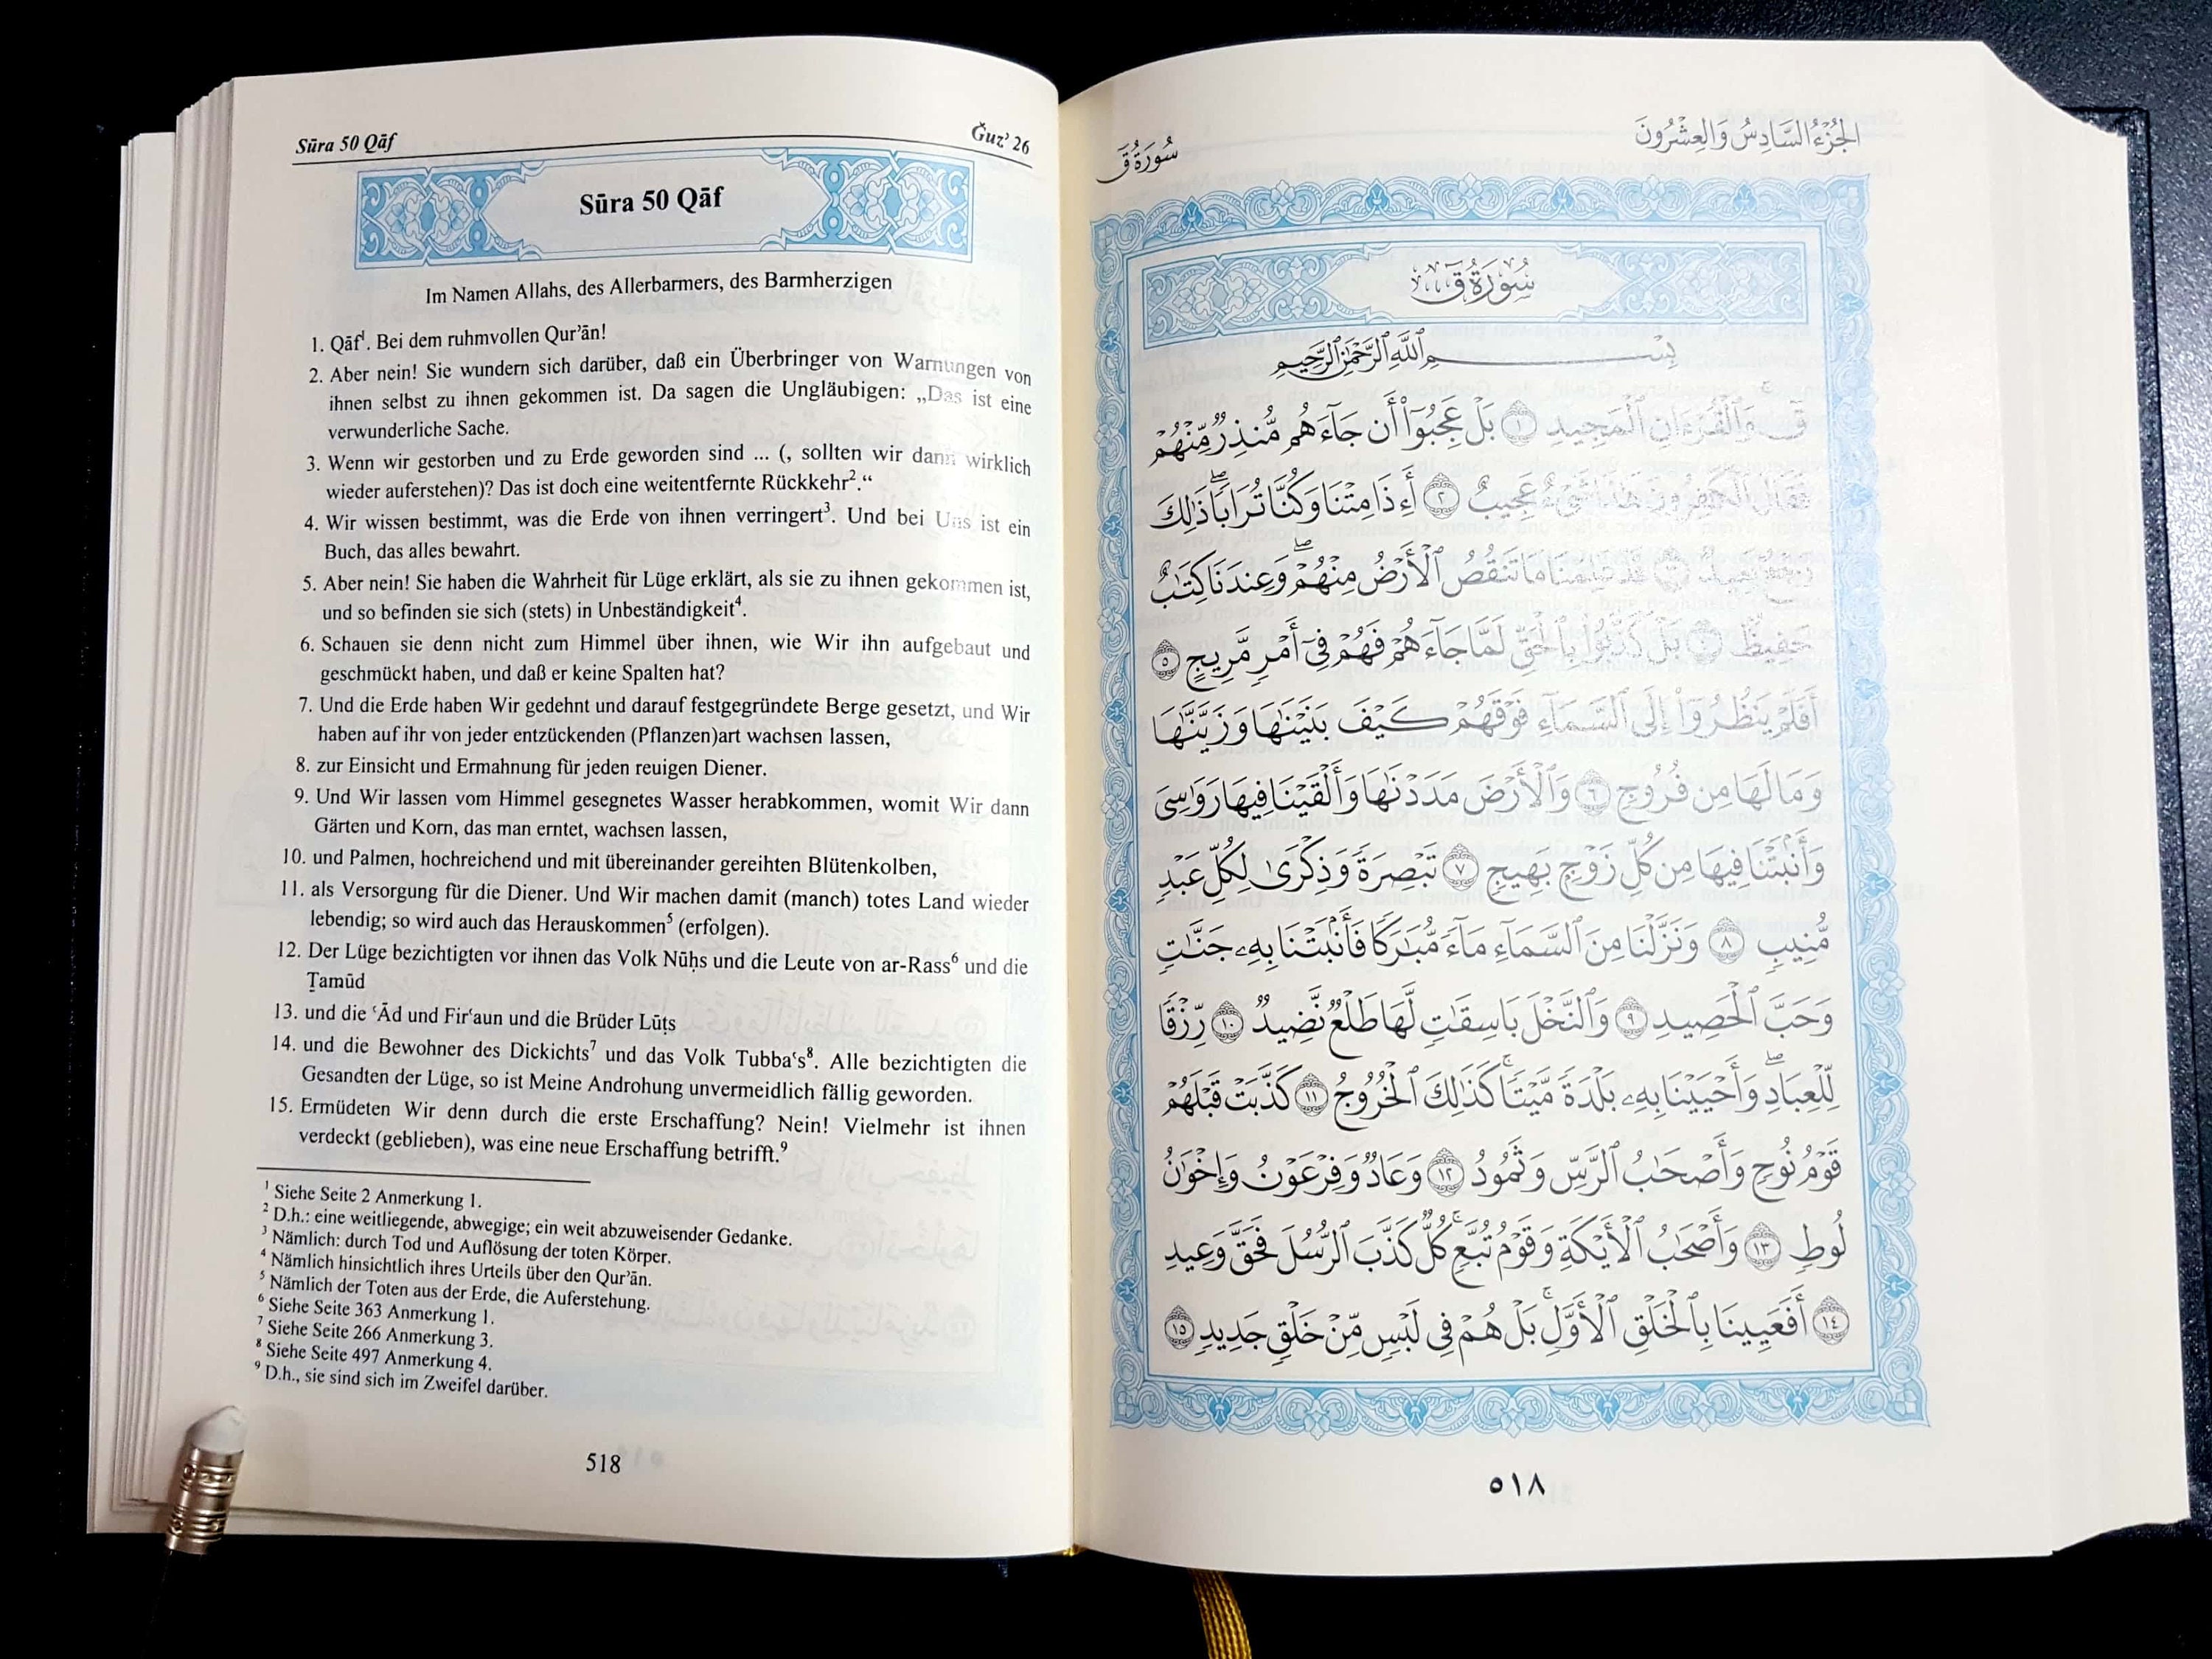 Sūra 50 Qāf
Ǧuzʾ 26
Sūra 50 Qāf
Im Namen Allahs, des Allerbarmers, des Barmherzigen
1. Qāf¹. Bei dem ruhmvollen Qurʾān!
2. Aber nein! Sie wundern sich darüber, daß ein Überbringer von Warnungen von
ihnen selbst zu ihnen gekommen ist. Da sagen die Ungläubigen: „Das ist eine
verwunderliche Sache.
3. Wenn wir gestorben und zu Erde geworden sind ... (, sollten wir dann wirklich
wieder auferstehen)? Das ist doch eine weitentfernte Rückkehr².“
4. Wir wissen bestimmt, was die Erde von ihnen verringert³. Und bei Uns ist ein
Buch, das alles bewahrt.
5. Aber nein! Sie haben die Wahrheit für Lüge erklärt, als sie zu ihnen gekommen ist,
und so befinden sie sich (stets) in Unbeständigkeit⁴.
6. Schauen sie denn nicht zum Himmel über ihnen, wie Wir ihn aufgebaut und
geschmückt haben, und daß er keine Spalten hat?
7. Und die Erde haben Wir gedehnt und darauf festgegründete Berge gesetzt, und Wir
haben auf ihr von jeder entzückenden (Pflanzen)art wachsen lassen,
8. zur Einsicht und Ermahnung für jeden reuigen Diener.
9. Und Wir lassen vom Himmel gesegnetes Wasser herabkommen, womit Wir dann
Gärten und Korn, das man erntet, wachsen lassen,
10. und Palmen, hochreichend und mit übereinander gereihten Blütenkolben,
11. als Versorgung für die Diener. Und Wir machen damit (manch) totes Land wieder
lebendig; so wird auch das Herauskommen⁵ (erfolgen).
12. Der Lüge bezichtigten vor ihnen das Volk Nūḥs und die Leute von ar-Rass⁶ und die
Ṯamūd
13. und die ʿĀd und Firʿaun und die Brüder Lūṭs
14. und die Bewohner des Dickichts⁷ und das Volk Tubbaʿs⁸. Alle bezichtigten die
Gesandten der Lüge, so ist Meine Androhung unvermeidlich fällig geworden.
15. Ermüdeten Wir denn durch die erste Erschaffung? Nein! Vielmehr ist ihnen
verdeckt (geblieben), was eine neue Erschaffung betrifft.⁹
¹ Siehe Seite 2 Anmerkung 1.
² D.h.: eine weitliegende, abwegige; ein weit abzuweisender Gedanke.
³ Nämlich: durch Tod und Auflösung der toten Körper.
⁴ Nämlich hinsichtlich ihres Urteils über den Qurʾān.
⁵ Nämlich der Toten aus der Erde, die Auferstehung.
⁶ Siehe Seite 363 Anmerkung 1.
⁷ Siehe Seite 266 Anmerkung 3.
⁸ Siehe Seite 497 Anmerkung 4.
⁹ D.h., sie sind sich im Zweifel darüber.
518
الجُزْءُ السَّادِسُ وَالعِشْرُونَ
سُورَةُ قٓ
سُورَةُ قٓ
بِسْمِ ٱللَّهِ ٱلرَّحْمَٰنِ ٱلرَّحِيمِ
قٓ وَٱلْقُرْءَانِ ٱلْمَجِيدِ ١ بَلْ عَجِبُوٓا۟ أَن جَآءَهُم مُّنذِرٌ مِّنْهُمْ
فَقَالَ ٱلْكَٰفِرُونَ هَٰذَا شَىْءٌ عَجِيبٌ ٢ أَءِذَا مِتْنَا وَكُنَّا تُرَابًا ۖ ذَٰلِكَ
رَجْعٌۢ بَعِيدٌ ٣ قَدْ عَلِمْنَا مَا تَنقُصُ ٱلْأَرْضُ مِنْهُمْ ۖ وَعِندَنَا كِتَٰبٌ
حَفِيظٌۢ ٤ بَلْ كَذَّبُوا۟ بِٱلْحَقِّ لَمَّا جَآءَهُمْ فَهُمْ فِىٓ أَمْرٍ مَّرِيجٍ ٥
أَفَلَمْ يَنظُرُوٓا۟ إِلَى ٱلسَّمَآءِ فَوْقَهُمْ كَيْفَ بَنَيْنَٰهَا وَزَيَّنَّٰهَا
وَمَا لَهَا مِن فُرُوجٍ ٦ وَٱلْأَرْضَ مَدَدْنَٰهَا وَأَلْقَيْنَا فِيهَا رَوَٰسِىَ
وَأَنۢبَتْنَا فِيهَا مِن كُلِّ زَوْجٍۭ بَهِيجٍ ٧ تَبْصِرَةً وَذِكْرَىٰ لِكُلِّ عَبْدٍ
مُّنِيبٍ ٨ وَنَزَّلْنَا مِنَ ٱلسَّمَآءِ مَآءً مُّبَٰرَكًا فَأَنۢبَتْنَا بِهِۦ جَنَّٰتٍ
وَحَبَّ ٱلْحَصِيدِ ٩ وَٱلنَّخْلَ بَاسِقَٰتٍ لَّهَا طَلْعٌ نَّضِيدٌ ١٠ رِّزْقًا
لِّلْعِبَادِ ۖ وَأَحْيَيْنَا بِهِۦ بَلْدَةً مَّيْتًا ۚ كَذَٰلِكَ ٱلْخُرُوجُ ١١ كَذَّبَتْ قَبْلَهُمْ
قَوْمُ نُوحٍ وَأَصْحَٰبُ ٱلرَّسِّ وَثَمُودُ ١٢ وَعَادٌ وَفِرْعَوْنُ وَإِخْوَٰنُ
لُوطٍ ١٣ وَأَصْحَٰبُ ٱلْأَيْكَةِ وَقَوْمُ تُبَّعٍ ۚ كُلٌّ كَذَّبَ ٱلرُّسُلَ فَحَقَّ وَعِيدِ
١٤ أَفَعَيِينَا بِٱلْخَلْقِ ٱلْأَوَّلِ ۚ بَلْ هُمْ فِى لَبْسٍ مِّنْ خَلْقٍ جَدِيدٍ ١٥
٥١٨